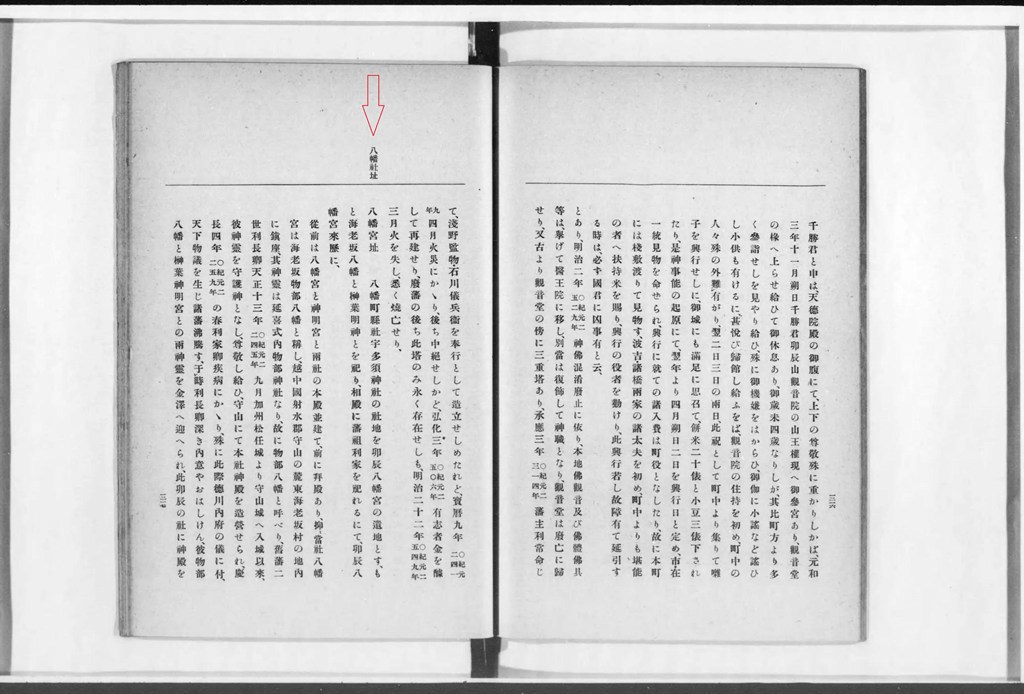 千勝君と申は、天德院殿の御腹にて、上下の尊敬殊に重かりしかば、元和
三年十一月朔日千勝君卯辰山觀音院の山王權現へ御參宮あり、觀音堂
の椽へ上らせ給ひて御休息あり、御歲未四歲なりしが、其比町方より多
く參詣せしを見やり給ひ、殊に御機嫌をはからひ、御伽に小謠など謠ひ
し小供も有けるに、其悅び歸館し給ふをば、觀音院の住持を初め、町中の
人々殊の外難有がり、翌二日三日の兩日、此祝として町中より集りて囃
子を興行せしに、御城にも滿足に思召て餅米二十俵と小豆三俵下され
たり、是神事能の起原にて、翌年より四月朔日二日を興行日と定め、市在
一統見物を命せられ、興行に就ての諸入費は町役となしたり、故に本町
には棧敷渡りて見物す、波吉諸橋兩家の諸太夫を初め、町中よりも堪能
の者へ扶持米を賜り興行の役者を勤けり、此興行若し故障有て延引す
る時は、必ず國君に凶事有と云、
とあり、明治二年〇紀元二五二九年神佛混淆廢止に依り、本地佛觀音及び佛體佛具
等は、擧げて醫王院に移し、別當は復飾して神職となり、觀音堂は廢亡に歸
せり、又古より觀音堂の傍に三重塔あり、承應三年〇紀元二三一四年藩主利常命じ
三二六
て、淺野監物石川儀兵衞を奉行として造立せしめたれど、寶曆九年〇紀元二四一
九年四月火災にかゝり、後ち中絕せしかど、弘化三年〇紀元二五〇六年有志者金を醵
して再建せり、廢藩の後ち此塔のみ永く存在せしも、明治二十二年〇紀元二五四九年
三月火を失し、悉く燒亡せり、
八幡社址
八幡宮址　八幡町縣社宇多須神社の社地を卯辰八幡宮の遺地とす、も
と海老坂八幡と榊葉明神とを祀り、相殿に藩祖利家を祀れるにて、卯辰八
幡宮來歷に、
從前は八幡宮と神明宮と兩社の本殿並建て、前に拜殿あり、抑〻當社八幡
宮は海老坂物部八幡と稱し、越中國射水郡守山の麓東海老坂村の地內
に鎭座其神靈は延喜式內物部神社なり、故に物部八幡と呼べり、舊藩二
世利長卿天正十三年〇紀元二二四五年九月加州松任城より守山城へ入城以來、
彼神靈を守護神となし、尊敬し給ひ、守山にて本社神殿を造營せられ、慶
長四年〇紀元二二五九年の春利家卿疾病にかゝり、殊に此際德川內府の儀に付、
天下物議を生じ諸藩沸騰す、于時利長卿深き內意やおはしけん、彼物部
八幡と榊葉神明宮との兩神靈を金澤へ迎へられ、此卯辰の社に神殿を
三二七